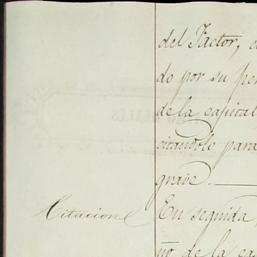 del Factor,
do por su
de la capital
citandolo para
grave.
Citacion
En seguida
de la